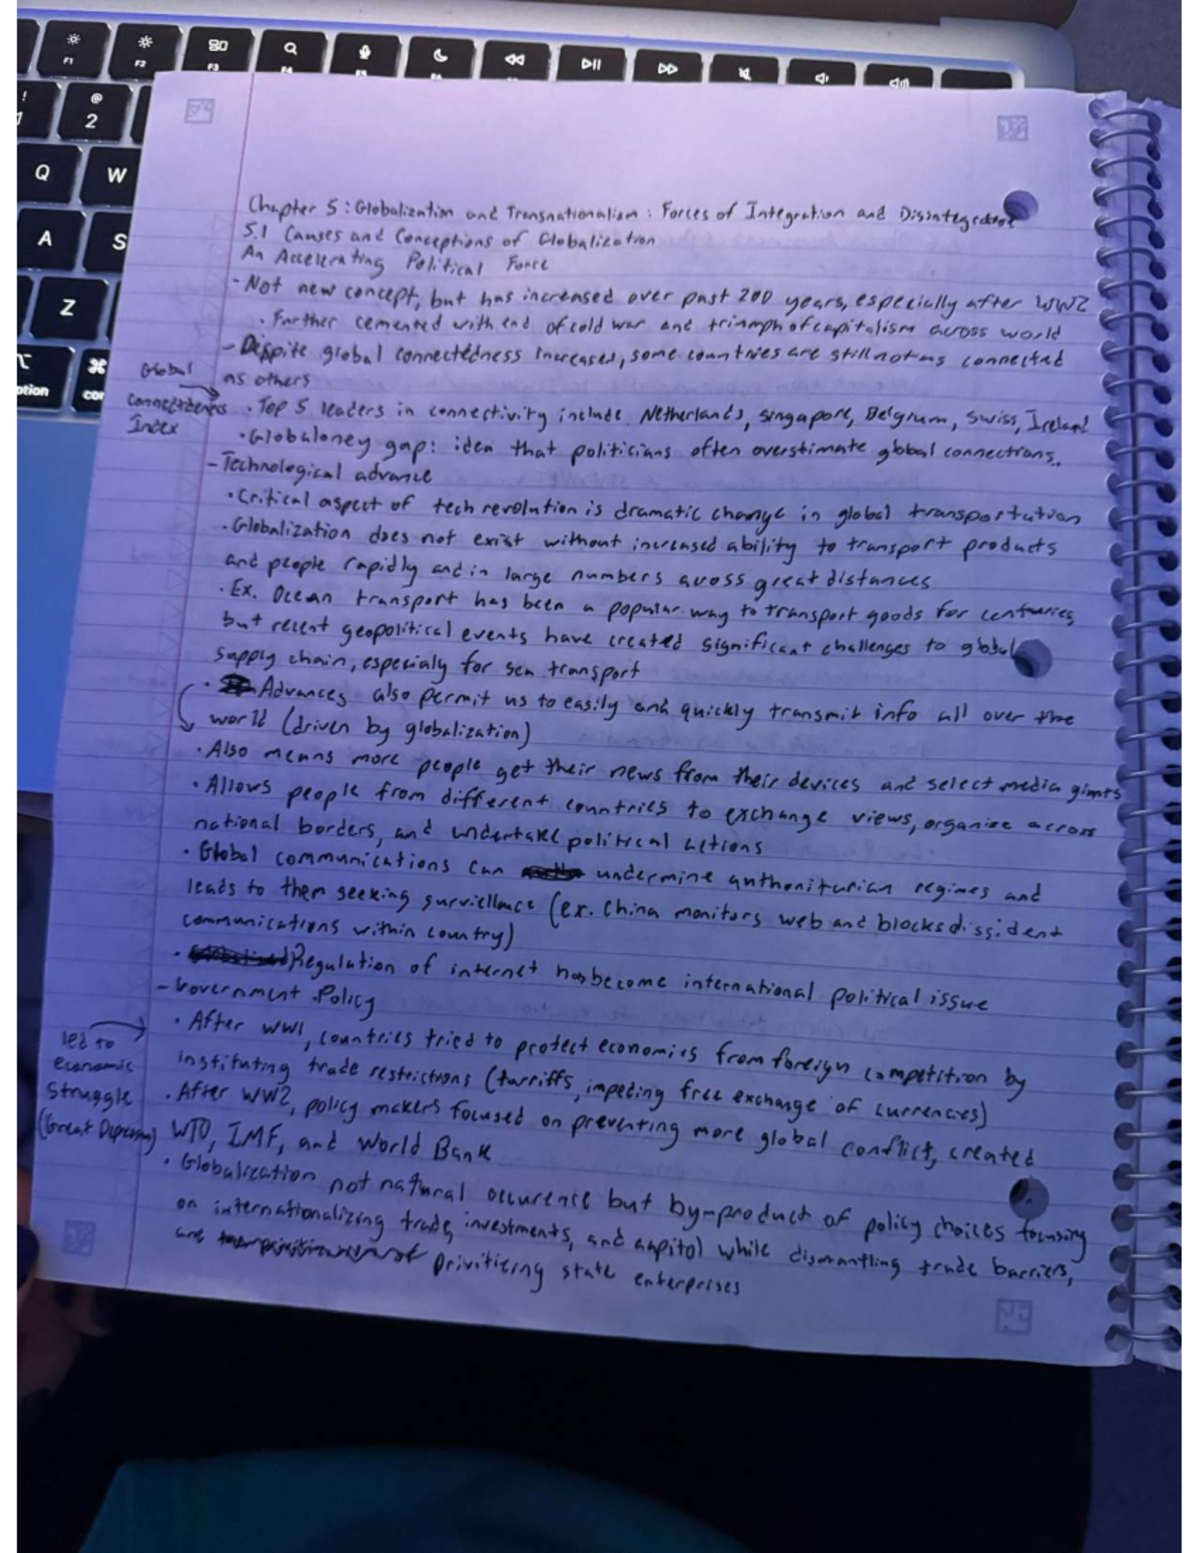 F1 F2 F3
! @ 2
Q W
A S
Z
option
⌘
Chapter 5: Globalization and Transnationalism: Forces of Integration and
5.1 Causes and Conceptions of Globalization
An Accelerating Political Force
- Not new concept, but has increased over past 200 years, especially after WW2
· Further cemented with end of cold war and triumph of capitalism across world
- Despite global connectedness increases, some countries are still not as connected
as others
Global
Connectedness
Index
· Top 5 leaders in connectivity include Netherlands, Singapore, Belgium, Swiss, Ireland
· Globaloney gap: idea that politicians often overestimate global connections.
- Technological advance
· Critical aspect of tech revolution is dramatic change in global transportation
· Globalization does not exist without increased ability to transport products
and people rapidly and in large numbers across great distances
· Ex. Ocean transport has been a popular way to transport goods for centuries,
but recent geopolitical events have created significant challenges to global
supply chain, especialy for sea transport
· Advances also permit us to easily and quickly transmit info all over the
world (driven by globalization)
· Also means more people get their news from their devices and select media giants
· Allows people from different countries to exchange views, organize across
national borders, and undertake political actions
· Global communications can undermine authoritarian regimes and
leads to them seeking survielance (ex. China monitors web and blocks dissident
communications within country)
· Regulation of internet has become international political issue
- Government Policy
· After WW1, countries tried to protect economies from foreign competition by
instituting trade restrictions (tarriffs, impeding free exchange of currencies)
led to
economic
struggle
(Great Depression)
· After WW2, policy makers focused on preventing more global conflict, created
WTO, IMF, and World Bank
· Globalization not natural occurence but by-product of policy choices focusing
on internationalizing trade, investments, and capitol while dismantling trade barriers,
and privitizing state enterprises